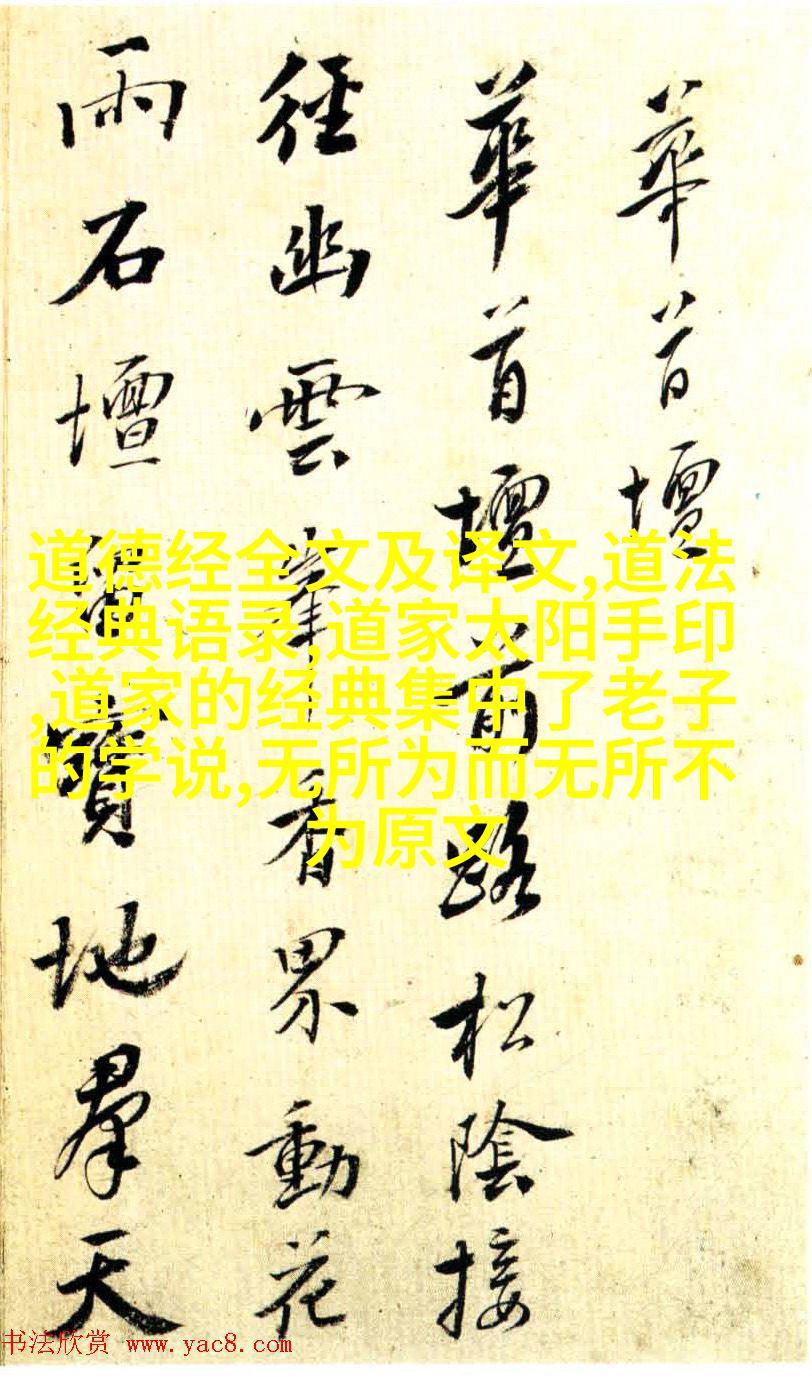 華首壇
華首壇前路松陰接
徑幽雲峯香界動花
雨石壇留寶地羣天
道德经全文及译文,道法
经典语录,道家太阳手印
,道家的经典集中了老子
的学说,无所为而无所不
为原文
书法欣赏 www.yac8.com